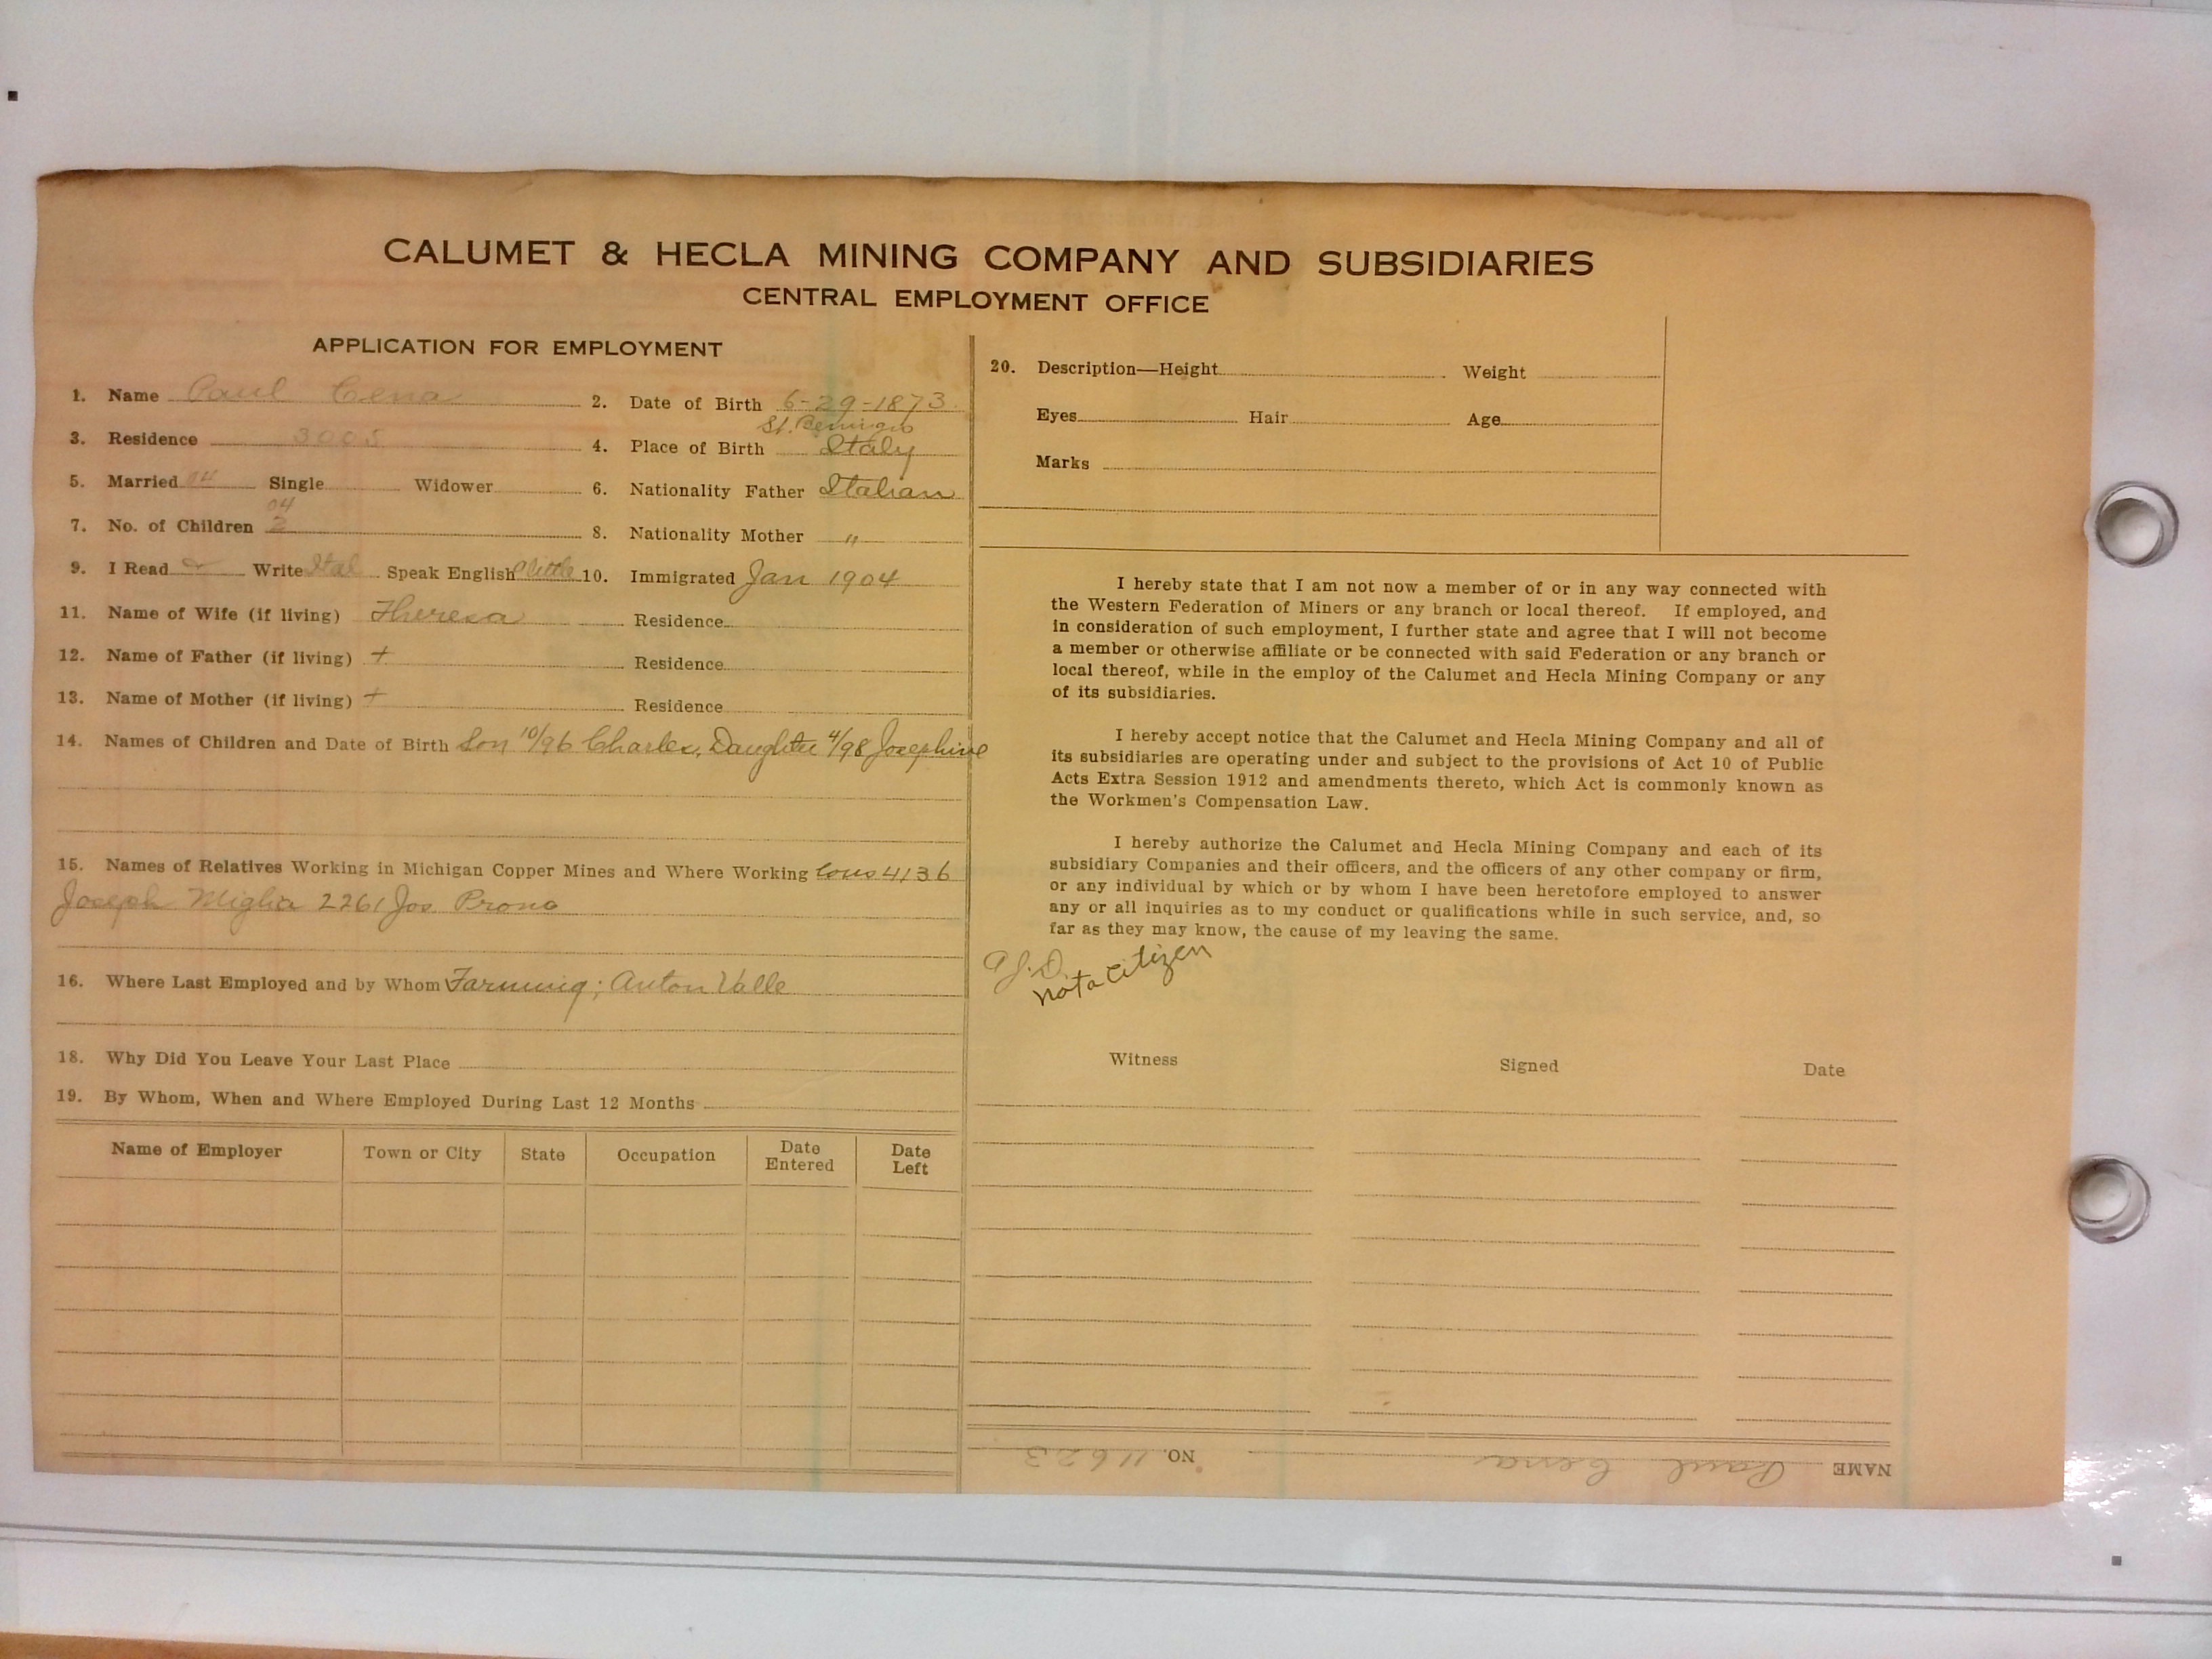 CALUMET & HECLA MINING COMPANY AND SUBSIDIARIES
CENTRAL EMPLOYMENT OFFICE
APPLICATION FOR EMPLOYMENT
1. Name Paul Cena 2. Date of Birth 6-29-1873
3. Residence 3005 4. Place of Birth St. Benigno Italy
5. Married 04 Single Widower 6. Nationality Father Italian
7. No. of Children 04 2 8. Nationality Mother "
9. I Read Write Ital Speak English little 10. Immigrated Jan 1904
11. Name of Wife (if living) Theresa Residence
12. Name of Father (if living) + Residence
13. Name of Mother (if living) + Residence
14. Names of Children and Date of Birth Son 10/96 Charles, Daughter 4/98 Josephine
15. Names of Relatives Working in Michigan Copper Mines and Where Working Cous 4136
Joseph Miglia 2261 Jos Prono
16. Where Last Employed and by Whom Farming; Anton Valle
18. Why Did You Leave Your Last Place
19. By Whom, When and Where Employed During Last 12 Months
Name of Employer Town or City State Occupation Date Entered Date Left
20. Description—Height Weight
Eyes Hair Age
Marks
I hereby state that I am not now a member of or in any way connected with
the Western Federation of Miners or any branch or local thereof. If employed, and
in consideration of such employment, I further state and agree that I will not become
a member or otherwise affiliate or be connected with said Federation or any branch or
local thereof, while in the employ of the Calumet and Hecla Mining Company or any
of its subsidiaries.
I hereby accept notice that the Calumet and Hecla Mining Company and all of
its subsidiaries are operating under and subject to the provisions of Act 10 of Public
Acts Extra Session 1912 and amendments thereto, which Act is commonly known as
the Workmen's Compensation Law.
I hereby authorize the Calumet and Hecla Mining Company and each of its
subsidiary Companies and their officers, and the officers of any other company or firm,
or any individual by which or by whom I have been heretofore employed to answer
any or all inquiries as to my conduct or qualifications while in such service, and, so
far as they may know, the cause of my leaving the same.
not a citizen
Witness Signed Date
NAME Paul Cena NO. 11623